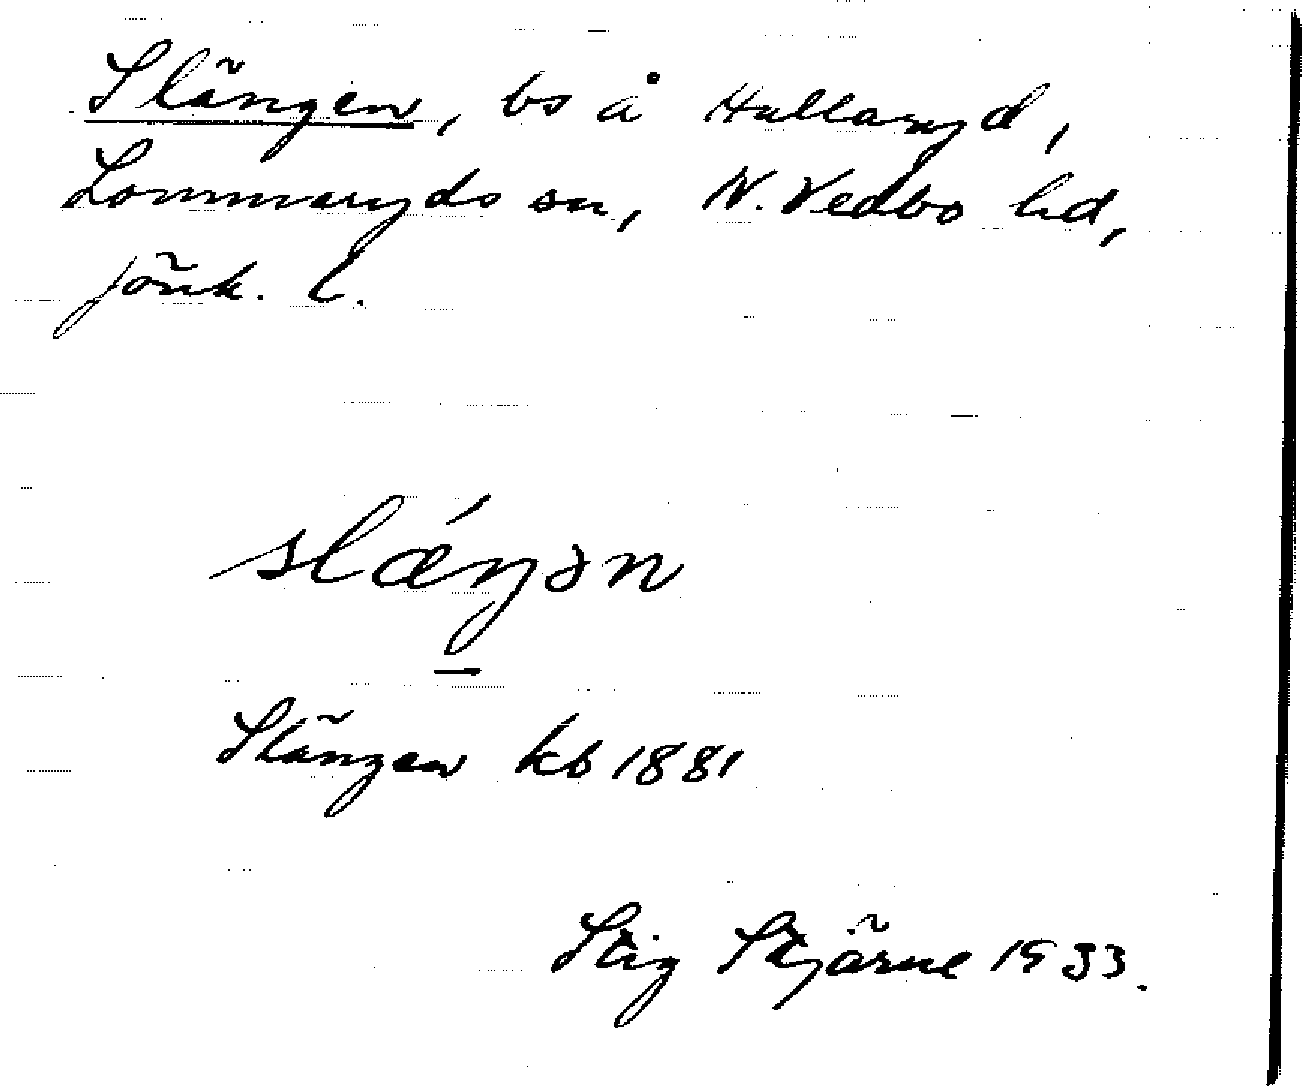 Slängen, bs å Hullaryd,
Lommaryds sn, N. Vedbo hd,
Jönk. l.
slǽŋən
Slängen kb 1881
Stig Stjärne 1933.